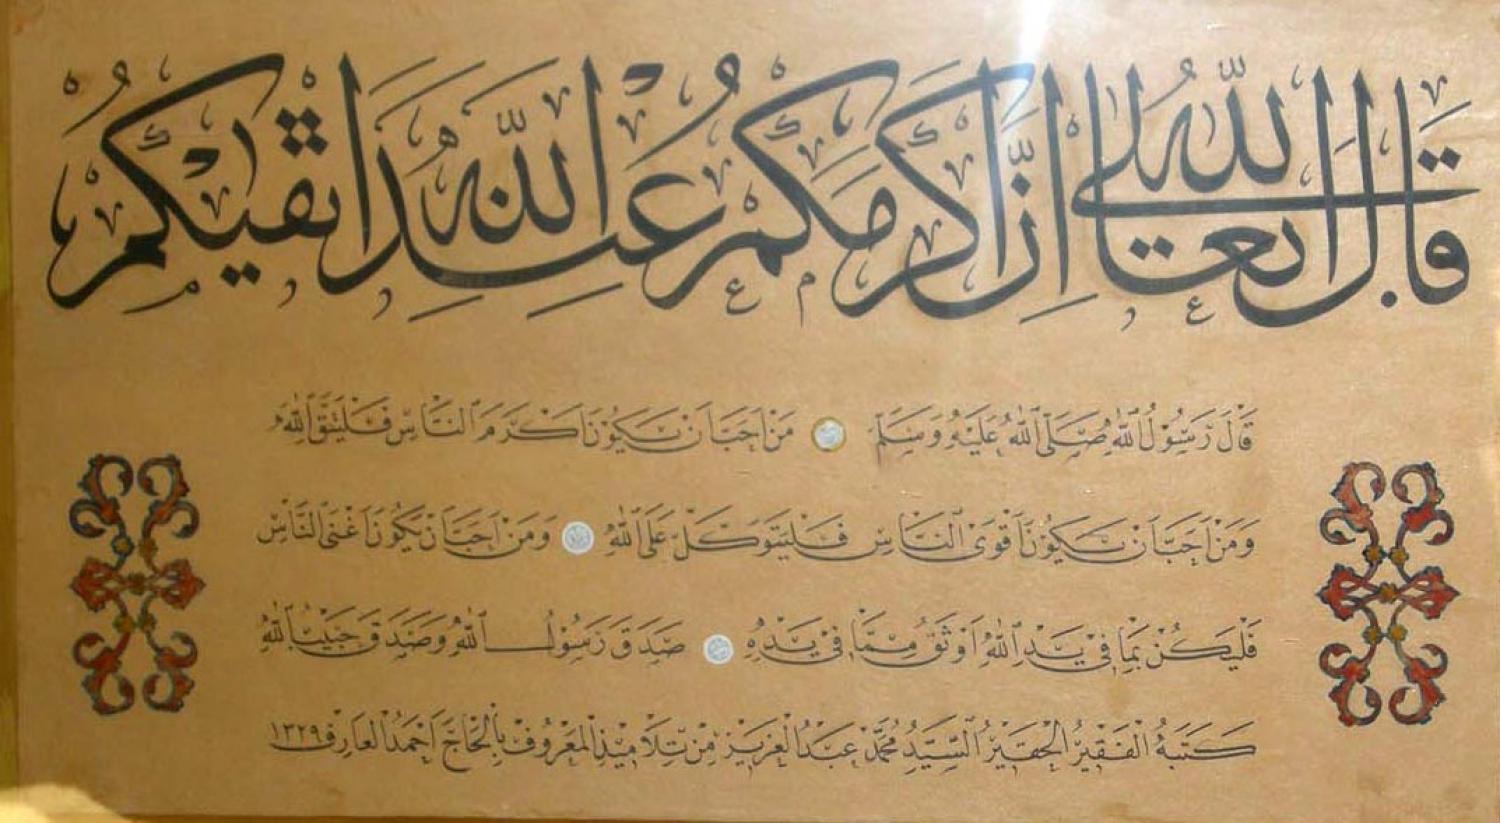 قَالَ اللّٰهُ تَعَالٰى اِنَّ اَكْرَمَكُمْ عِنْدَ اللّٰهِ اَتْقٰيكُمْ
قَالَ رَسُولُ اللّٰهِ صَلَّى اللّٰهُ عَلَيْهِ وَسَلَّمَ مَنْ اَحَبَّ اَنْ يَكُونَ اَكْرَمَ النَّاسِ فَلْيَتَّقِ اللّٰهَ
وَمَنْ اَحَبَّ اَنْ يَكُونَ اَقْوَى النَّاسِ فَلْيَتَوَكَّلْ عَلَى اللّٰهِ وَمَنْ اَحَبَّ اَنْ يَكُونَ اَغْنَى النَّاسِ
فَلْيَكُنْ بِمَا فِى يَدِ اللّٰهِ اَوْثَقُ مِمَّا فِى يَدِهِ صَدَقَ رَسُولُ اللّٰهِ وَصَدَقَ حَبِيبُ اللّٰهِ
كَتَبَهُ الْفَقِيرُ الْحَقِيرُ السَّيِّدُ مُحَمَّدْ عَبْدُ الْعَزِيزِ مِنْ تَلَامِيذِ الْمَعْرُوفِ بِالْحَاجّ اَحْمَدُ الْعَارِفِ ١٣٢٩